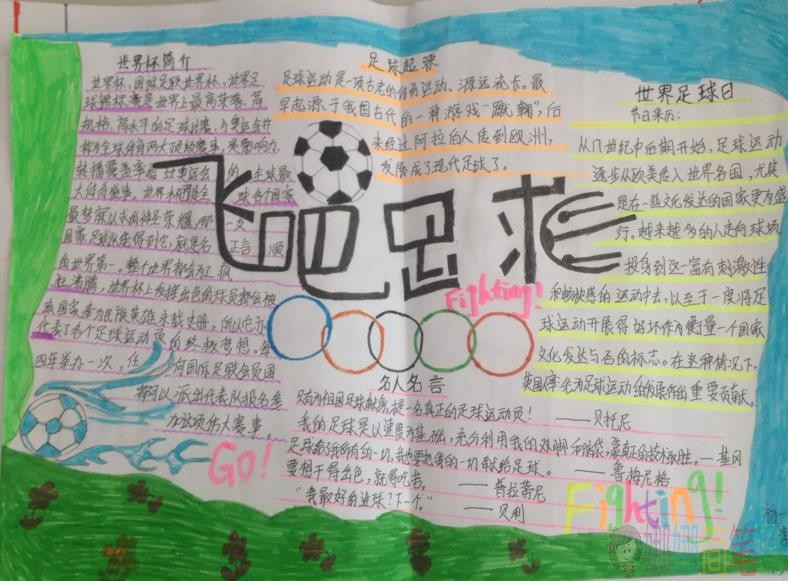 世界杯简介
世界杯，国际足联世界杯，世界足
球锦标赛是世界上最高荣誉、高
规格、高水平的足球比赛，与奥运会并
称为全球体育两大顶级赛事，
大体育赛事。世界杯是全
球各个国家
最梦寐以求的神圣荣耀，哪一支
国家足球队能得到它，就是名
正言
顺
的世界第一，整个世界都会为
疯
狂沸腾，世界杯上发挥出色的球员都会被
该国家奉为民族英雄永载史册，所以它亦
代表了各个足球运动员的终极梦想。每
四年举办一次，任
何国际足联会员国
都可以派出代表队报名参
加这项伟大赛事
足球起源
足球运动是一项古老的体育运动，源远流长。最
早起源于我国古代的一种游戏“蹴鞠”，后
来经过阿拉伯人传到欧洲，
发展成了现代足球了。
世界足球日
节日来历：
从17世纪中后期开始，足球运动
逐步从欧美传入世界各国，尤其
是在一些文化发达的国家更为盛
行。越来越多的人走向球场
投身到这一富有刺激性
和畅快感的运动中去，以至于一度将足
球运动开展得好坏作为衡量一个国家
文化发达与否的标志。在这种情况下，
英国率先为足球运动的发展作出重要贡献。
飞吧足球
Fighting!
名人名言
只有为祖国足球献身，才是一名真正的足球运动员！ ——贝托尼
我的足球是以速度为基础，充分利用我的双脚和脑袋，靠真正的技术取胜。——基冈
足球给了我所有的一切，我也要把我的一切献给足球。 ——鲁梅尼格
要想干得出色，就得吃苦。 ——普拉蒂尼
“我最好的进球？下一个。” ——贝利
GO!
Fighting!
初一